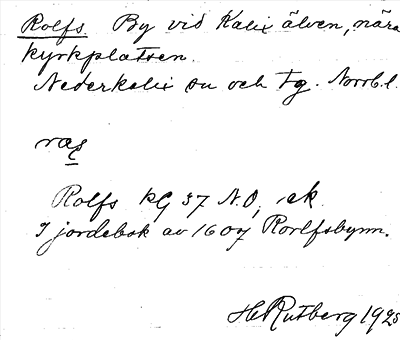 Rolfs. By vid Kalix älven, nära
kyrkplatsen.
Nederkalix sn och tg. Norrb. l.
Rolfs kG 37 N.O, ek.
I jordebok av 1607 Rorlfsbynn.
H Rutberg 1925